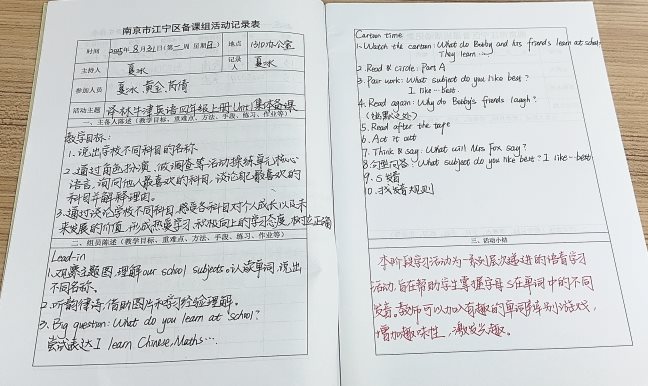 南京市江宁区备课组活动记录表
时间 2025年8月31日(第一周 星期日) 地点 1310办公室
主持人 夏冰 记录人 夏冰
参加人员 夏冰 黄金 芮倩
活动主题 译林牛津英语四年级上册Unit1集体备课
一、主备人陈述(教学目标、重难点、方法、手段、练习、作业等)
教学目标:
1. 说出学校不同科目的名称.
2. 通过角色扮演、做调查等活动操练单元核心
语言, 询问他人最喜欢的科目, 谈论自己最喜欢的
科目并解释理由。
3. 通过谈论学校不同科目, 感受各科目对个人成长以及未
来发展的价值, 形成热爱学习、积极向上的学习态度,
二、组员陈述(教学目标、重难点、方法、手段、练习、作业等)
Lead-in
1. 观察主题图, 理解our school subjects。认读单词, 说出
不同名称.
2. 听韵律诗, 借助图片和学习经验理解.
3. Big question: What do you learn at school?
尝试表达 I learn Chinese, Maths…
Cartoon time
1. Watch the cartoon: What do Bobby and his friends learn at school
They learn …
2. Read & circle: Part A
3. Pair work: What subject do you like best?
I like… best.
4. Read again: Why do Bobby's friends laugh?
5. Read after the tape
6. Act it out
7. Think & say: What will Mrs Fox say?
8. 句型问答: What subject do you like best? I like… best.
9. S 发音
10. 找发音规则
三、活动小结
本阶段学习活动为一系列层次递进的语音学习
活动, 旨在帮助学生掌握字母S在单词中的不同
发音。教师可以加入有趣的单词小游戏,
增加趣味性, 激发兴趣。